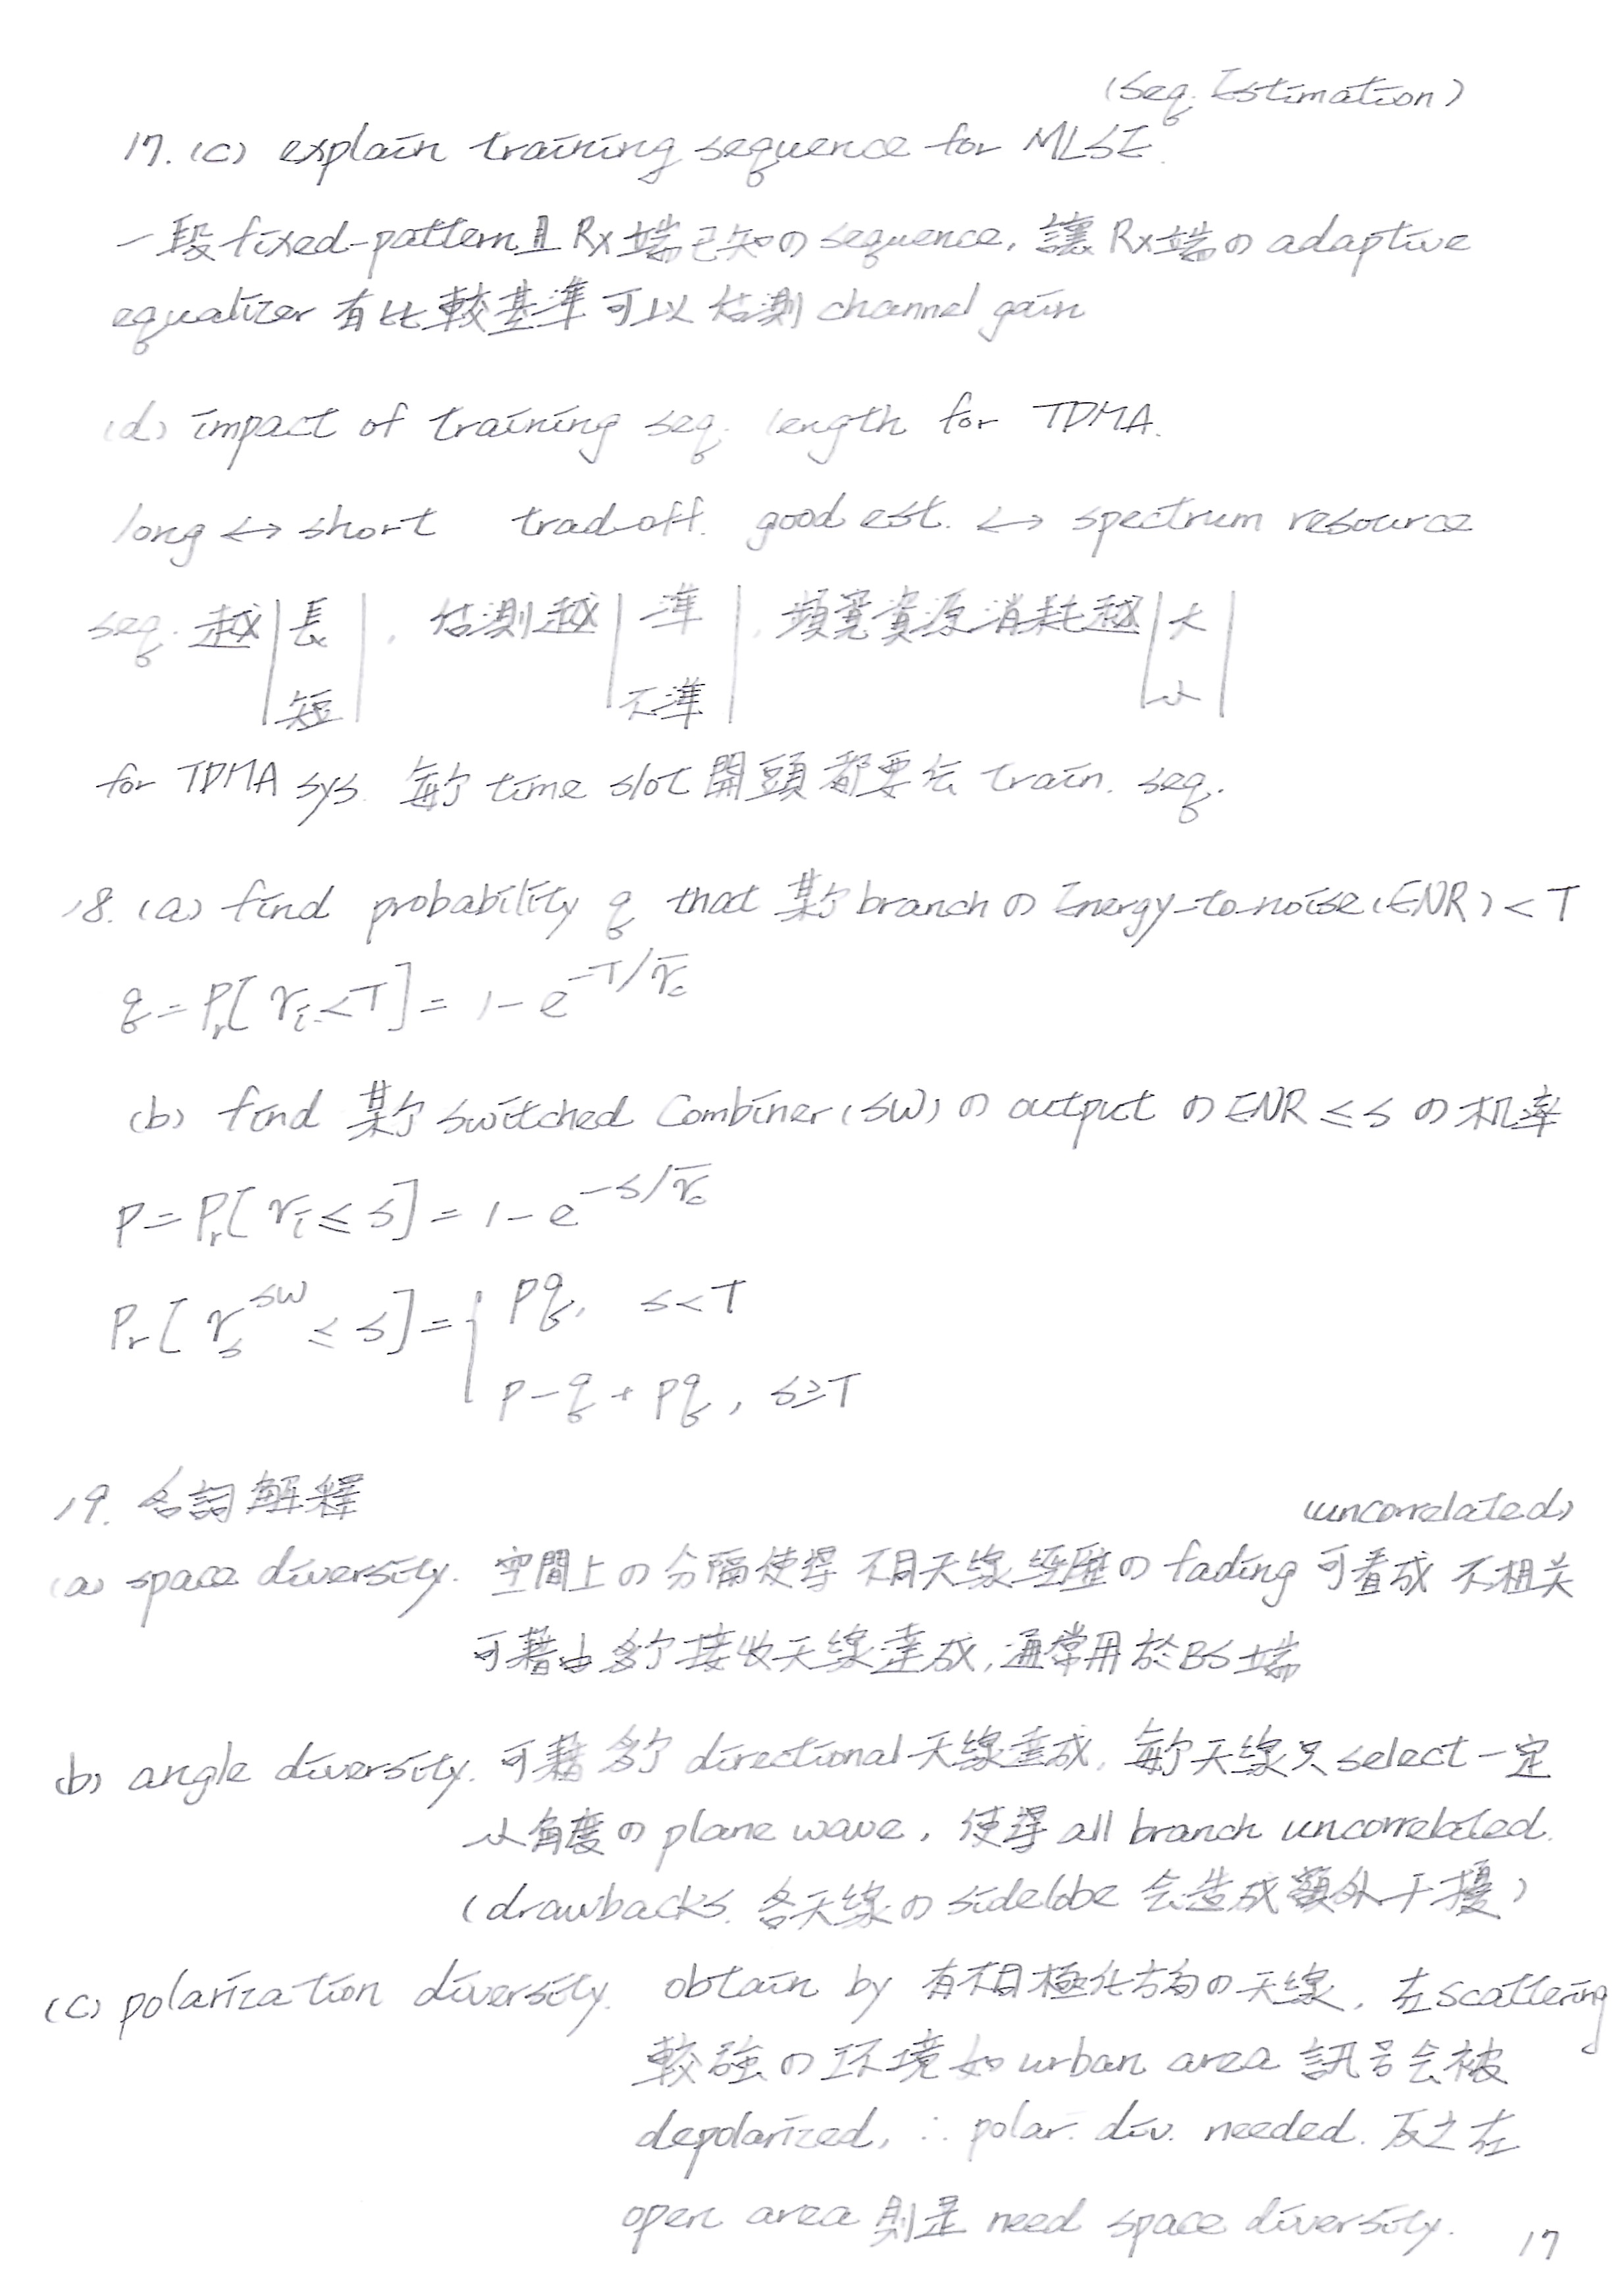 (Seq. Estimation)
17. (c) explain training sequence for MLSE.
一段 fixed-pattern且 Rx端已知の sequence, 讓 Rx端の adaptive
equalizer 有比較基準可以估測 channel gain
(d) impact of training seq. length for TDMA.
long ↔ short trad-off. good est. ↔ spectrum resource
seq. 越|長|, 估測越|準|, 頻寬資源消耗越|大|
短 不準 小
for TDMA sys. 每个 time slot 開頭都要伝 train. seq.
18. (a) find probability q that 某个 branch の Energy-to-noise (ENR) < T
q = Pr[γi < T] = 1 - e^{-T/γ̄c}
(b) find 某个 Switched Combiner (SW) の output の ENR ≤ S の 机率
p = Pr[γi ≤ S] = 1 - e^{-S/γ̄c}
Pr[γs^{SW} ≤ S] = { pq, S < T
p - q + pq, S ≥ T
19. 名詞解釋
(uncorrelated)
(a) space diversity. 空間上の分隔使得不同天線經歷の fading 可看成 不相关
可藉由多个接收天線達成, 通常用於BS端
(b) angle diversity. 可藉多个 directional 天線達成, 每个天線只 select 一定
小角度の plane wave, 使得 all branch uncorrelated.
(drawbacks. 各天線の sidelobe 会造成額外干擾)
(c) polarization diversity. obtain by 有不同極化方向の天線, 在scattering
較強の环境如 urban area 訊号会被
depolarized, ∴ polar. div. needed. 反之在
open area 則是 need space diversity.
17